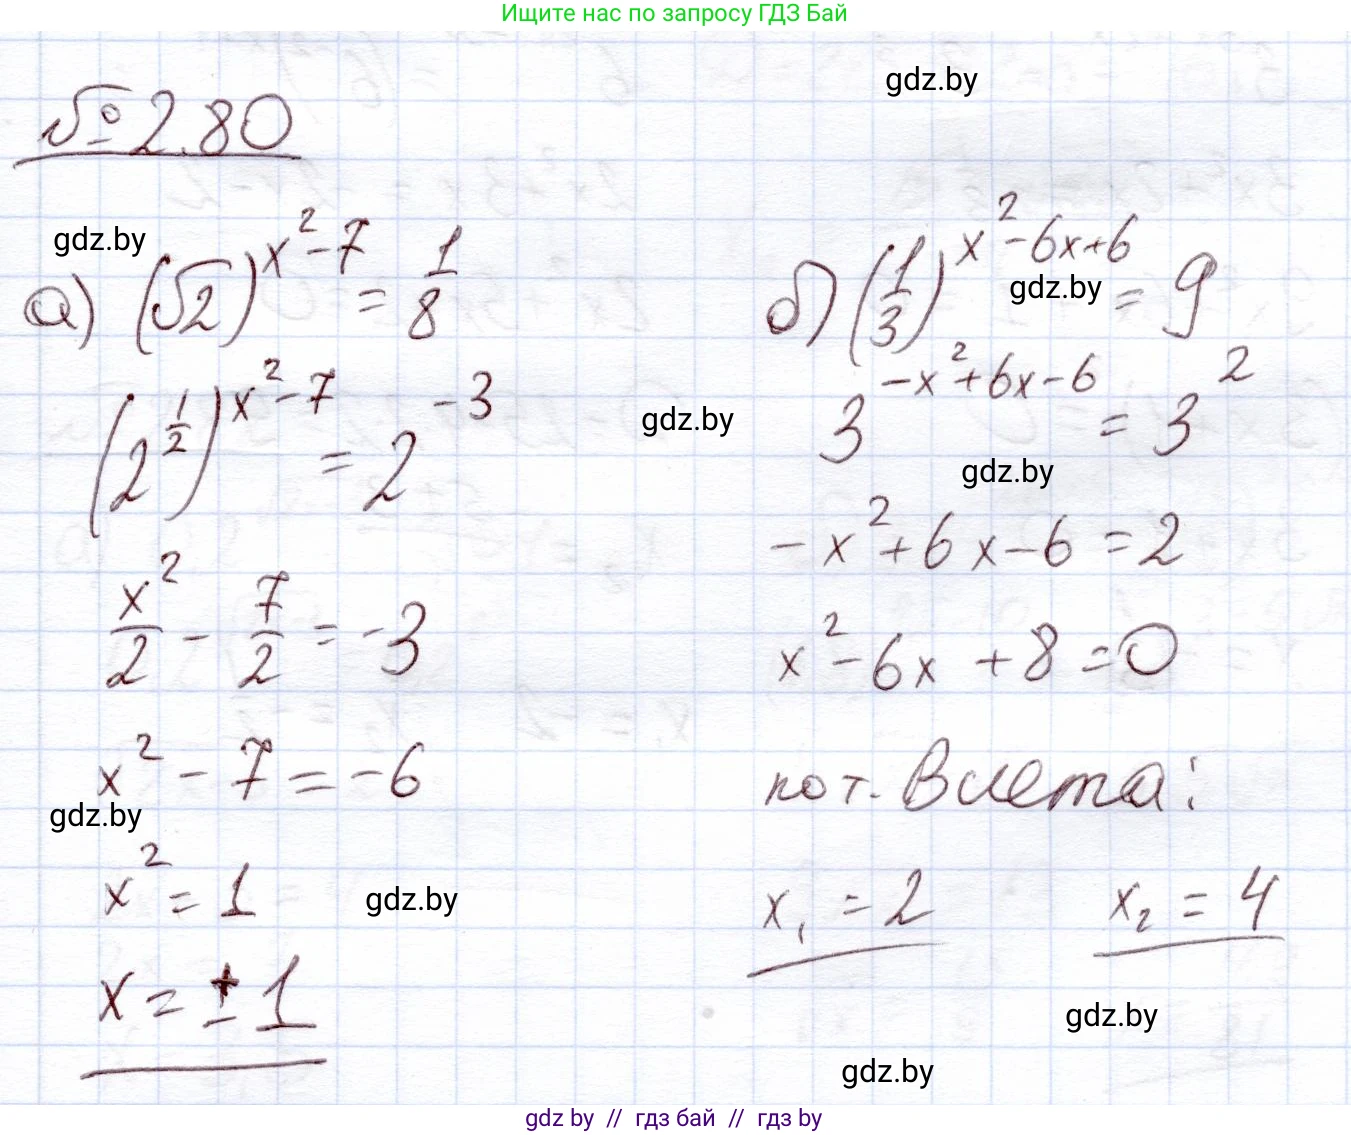 Ищите нас по запросу ГДЗ Бай
gdz.by
№ 2.80
gdz.by
а) (√2)^(x²-7) = 1/8
(2^(1/2))^(x²-7) = 2^(-3)
x²/2 - 7/2 = -3
x² - 7 = -6
gdz.by
x² = 1
gdz.by
x = ±1
б) (1/3)^(x²-6x+6) = 9
gdz.by
3^(-x²+6x-6) = 3²
gdz.by
gdz.by
-x²+6x-6 = 2
x²-6x+8=0
по т. Виета:
x₁ = 2 x₂ = 4
gdz.by
gdz.by
gdz by // гдз бай // гдз by